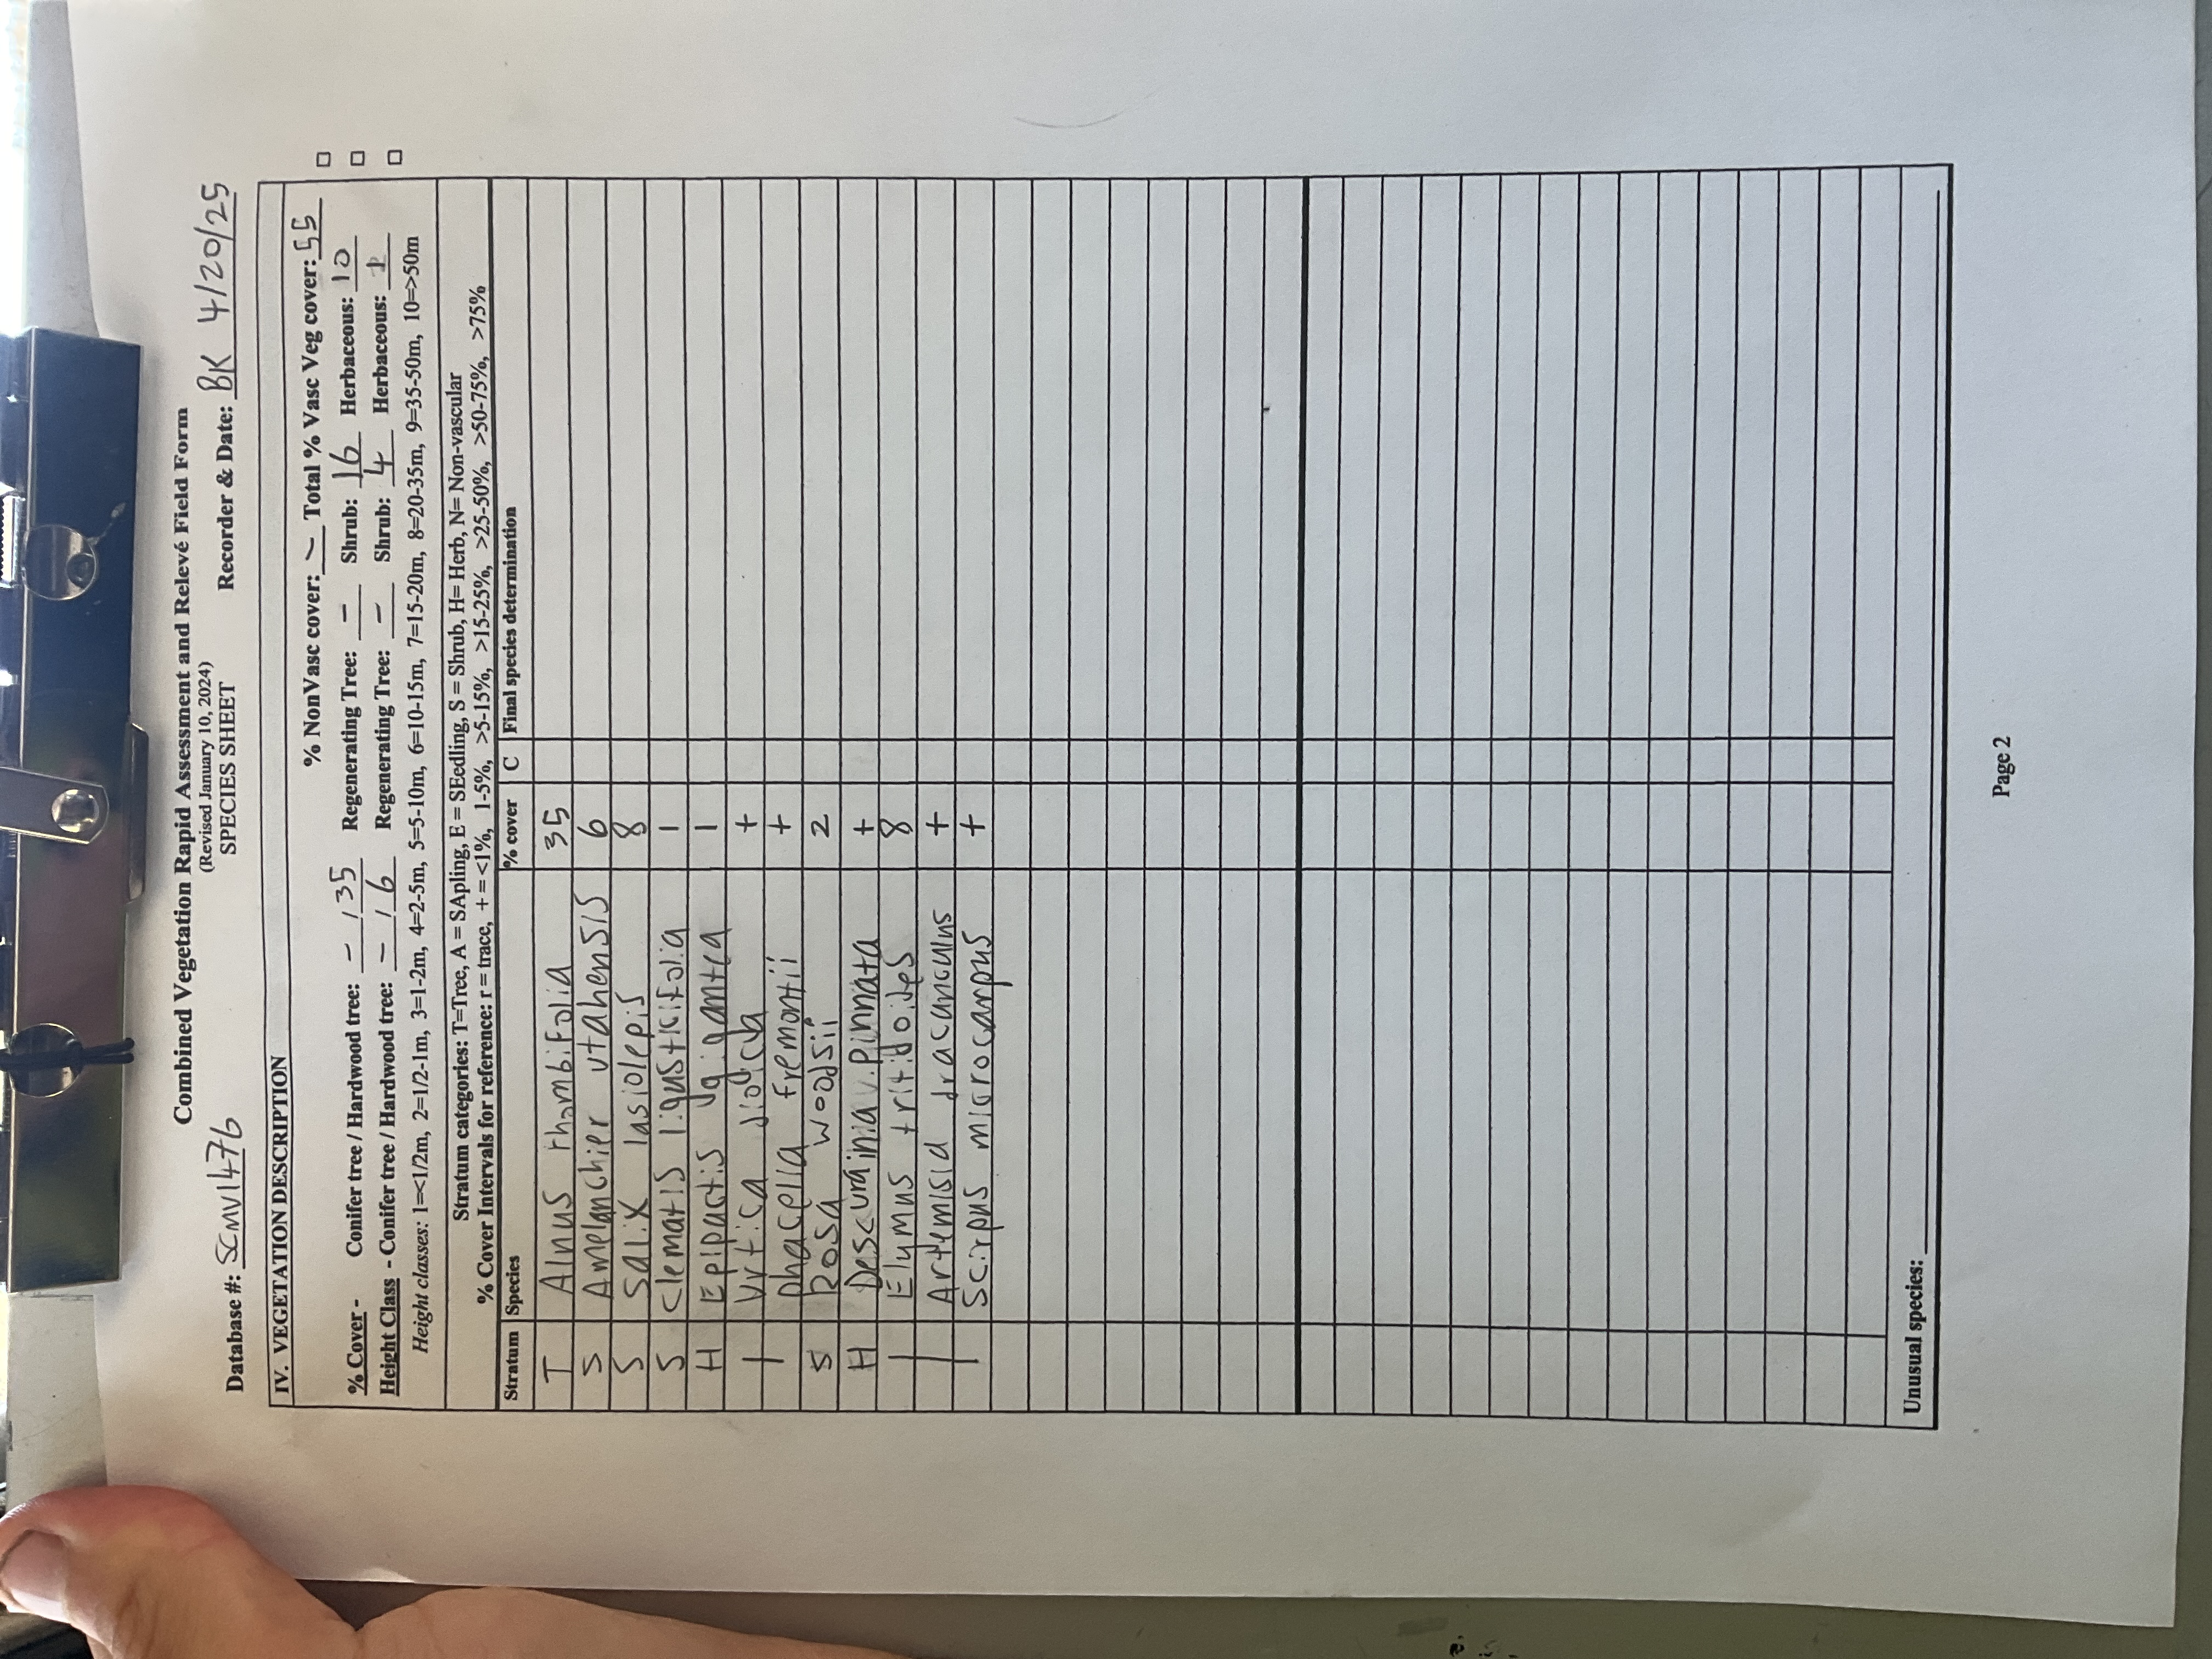 Combined Vegetation Rapid Assessment and Relevé Field Form
(Revised January 10, 2024)
SPECIES SHEET
Database #: SCMV1476 Recorder & Date: BK 4/20/25
IV. VEGETATION DESCRIPTION
% NonVasc cover: – Total % Vasc Veg cover: 55
% Cover - Conifer tree / Hardwood tree: – / 35 Regenerating Tree: – Shrub: 16 Herbaceous: 10
Height Class - Conifer tree / Hardwood tree: – / 6 Regenerating Tree: – Shrub: 4 Herbaceous:
Height classes: 1=<1/2m, 2=1/2-1m, 3=1-2m, 4=2-5m, 5=5-10m, 6=10-15m, 7=15-20m, 8=20-35m, 9=35-50m, 10=>50m
Stratum categories: T=Tree, A = SApling, E = SEedling, S = Shrub, H= Herb, N= Non-vascular
% Cover Intervals for reference: r = trace, + = <1%, 1-5%, >5-15%, >15-25%, >25-50%, >50-75%, >75%
Stratum Species % cover C Final species determination
T Alnus rhombifolia 35
S Amelanchier utahensis 6
S Salix lasiolepis 8
S Clematis ligusticifolia 1
H Epipactis gigantea 1
| Urtica dioica +
| Phacelia fremontii +
S Rosa woodsii 2
H Descurainia pinnata +
| Elymus triticoides 8
| Artemisia dracunculus +
| Scirpus microcarpus +
Unusual species:
Page 2